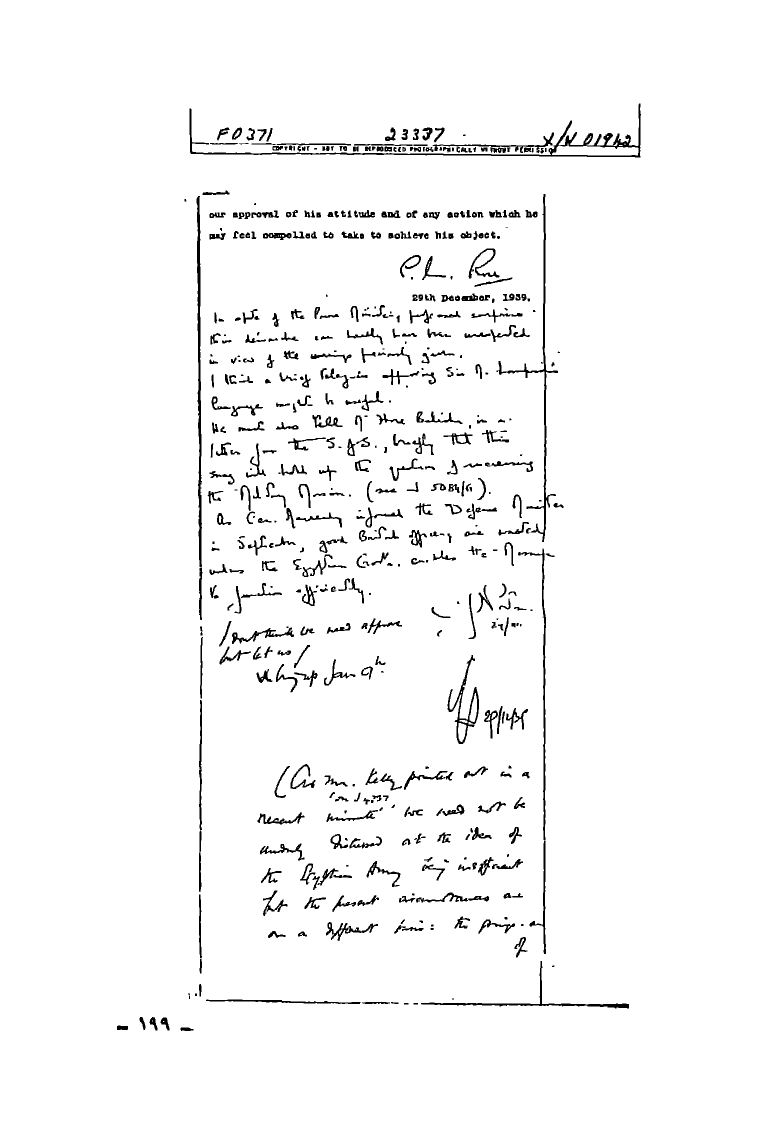 FO371 23337 X/N 01942
COPYRIGHT - NOT TO BE REPRODUCED PHOTOGRAPHICALLY WITHOUT PERMISSION
our approval of his attitude and of any action which he
may feel compelled to take to achieve his object.
29th December, 1939.
In spite of the Prime Minister's professed surprise
this démarche can hardly have been unexpected
in view of the warnings previously given.
I think a brief telegram approving Sir M. Lampson's
language might be useful.
We must also tell Mr Hore Belisha, in a
letter from the S. of S., briefly that this
may well hold up the question of increasing
the Military Mission. (see J 5084/G).
As Gen. informed the Defence Minister
in September, good British officers are wasted
unless the Egyptian Govt. enables the Mission
to function efficiently.
I don't think we need approve
but let us /
Jan 9th.
29/12/39
(As Mr. Kelly pointed out in a
recent minute we need not be
unduly distressed at the idea of
the Egyptian Army being inefficient
but the present circumstances are
on a different basis: the
of
- ١٩٩ -